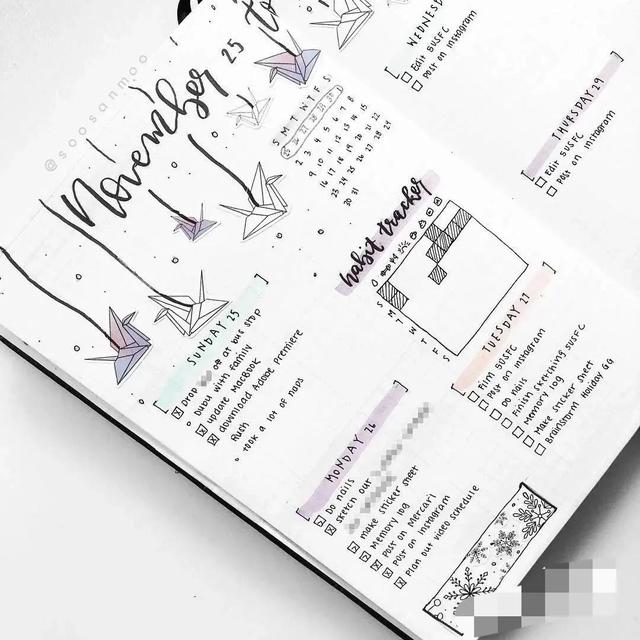 @soosanmoo
November 25 to
S M T W T F S
25 26 27 28 29 30 1
2 3 4 5 6 7 8
9 10 11 12 13 14 15
16 17 18 19 20 21 22
23 24 25 26 27 28 29
30 31
WEDNESD
Edit SUSFC
Post on Instagram
THURSDAY 29
Edit SUSFC
Post on Instagram
habit tracker
S M T W T H F S
SUNDAY 25
Drop off at bus stop
Bubu with family
update MacBook
download Adobe Premiere
Rush
Took a lot of naps
MONDAY 26
Do nails
Sketch out
make sticker sheet
Memory log
Post on Mercari
Post on Instagram
Plan out video schedule
TUESDAY 27
Film SUSFC
Post on Instagram
Do nails
Finish sketching SUSFC
Memory log
Make sticker sheet
Brainstorm Holiday GG